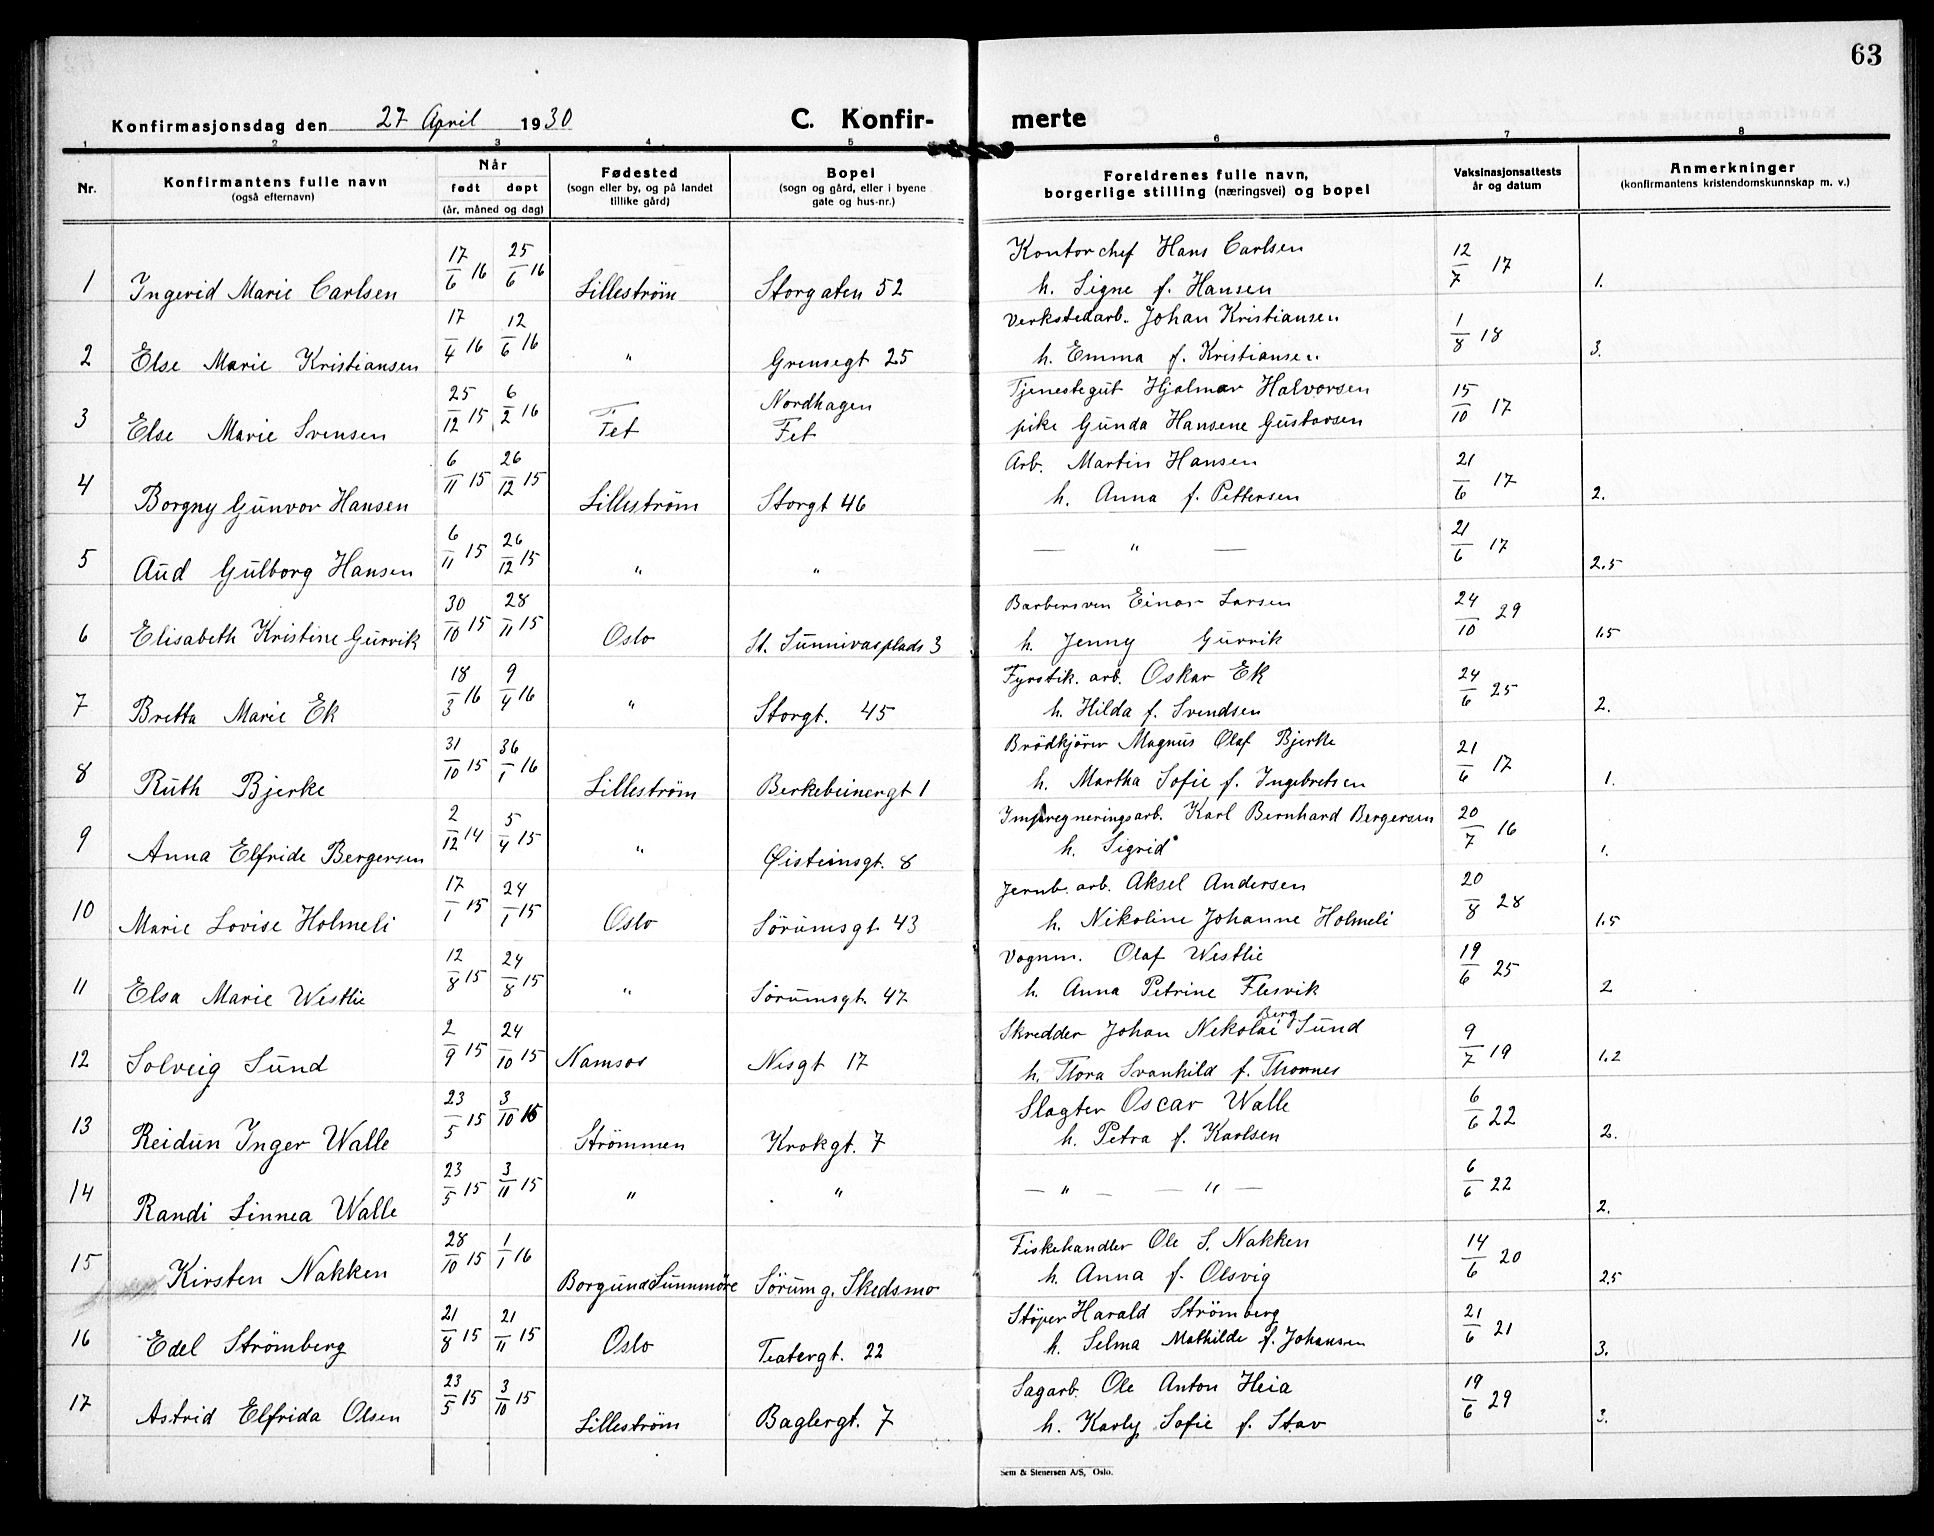 63
Konfirmasjonsdag den 27 April 1930 C. Konfir- merte
1 2 3 4 5 6 7 8
Nr. Konfirmantens fulle navn (også efternavn) Når født døpt (år, måned og dag) Fødested (sogn eller by, og på landet tillike gård) Bopel (sogn og gård, eller i byene gate og hus-nr.) Foreldrenes fulle navn, borgerlige stilling (næringsvei) og bopel Vaksinasjonsattests år og datum Anmerkninger (konfirmantens kristendomskunnskap m. v.)
1 Ingerid Marie Carlsen 17/6 16 25/6 16 Lilleström Storgaten 52 Kontorchef Hans Carlsen 12/7 17 1.
h. Signe f. Hansen
2 Else Marie Kristiansen 17/4 16 12/6 16 " Grensegt 25 Verkstedarb. Johan Kristiansen 1/8 18 3.
h. Emma f. Kristiansen
3 Else Marie Svensen 25/12 15 6/2 16 Fet Nordhagen Fet Tjenestegut Hjalmar Halvorsen 15/10 17
pike Gunda Hansene Gustavsen
4 Borgny Gunvor Hansen 6/11 15 26/12 15 Lilleström Storgt 46 Arb. Martin Hansen 21/6 17 2.
h. Anna f. Pettersen
5 Aud Gulborg Hansen 6/11 15 26/12 15 " " — " — 21/6 17 2.5
6 Elisabeth Kristine Gurvik 30/10 15 28/11 15 Oslo St. Sunnivasplads 3 Barbersven Einar Larsen 24/10 29 1.5
h. Jenny Gurvik
7 Bretta Marie Ek 18/3 16 9/4 16 " Storgt. 45 Fyrstik. arb. Oskar Ek 24/6 25 2.
h. Hilda f. Svendsen
8 Ruth Bjerke 31/10 15 36/1 16 Lilleström Berkebeinergt 1 Brödkjörer Magnus Olaf Bjerke 21/6 17 1.
h. Martha Sofie f. Ingebretsen
9 Anna Elfride Bergersen 2/12 14 5/4 15 " Øisteinsgt. 8 Impregneringsarb. Karl Bernhard Bergersen 20/7 16 1.
h. Sigrid
10 Marie Lovise Holmeli 17/1 15 24/1 15 Oslo Sörumsgt. 43 Jernb. arb. Aksel Andersen 20/8 28 1.5
h. Nikoline Johanne Holmeli
11 Elsa Marie Westlie 12/8 15 24/8 15 " Sörumsgt. 47 Vognm. Olaf Westlie 19/6 25 2
h. Anna Petrine Flesvik
12 Solveig Sund 2/9 15 24/10 15 Namsos Nesgt 17 Skredder Johan Nikolai Berg Sund 9/7 19 1.2
h. Flora Svanhild f. Thornes
13 Reidun Inger Walle 23/5 15 3/10 15 Strömmen Krokgt. 7 Slagter Oscar Walle 6/6 22 2.
h. Petra f. Karlsen
14 Randi Linnea Walle 23/5 15 3/11 15 " " — " — — " — 6/6 22 2.
15 Kirsten Nakken 28/10 15 1/1 16 Borgund Sunnmöre Sörum g. Skedsmo Fiskehandler Ole S. Nakken 14/6 20 2.5
h. Anna f. Olsvig
16 Edel Strömberg 21/8 15 21/11 15 Oslo Teatergt. 22 Stöper Harald Strömberg 21/6 21 3.
h. Selma Mathilde f. Johansen
17 Astrid Elfrida Olsen 23/5 15 3/10 15 Lilleström Baglergt. 7 Sagarb. Ole Anton Heia 19/6 29 3.
h. Karly Sofie f. Stav
Sem & Stenersen A/S, Oslo.